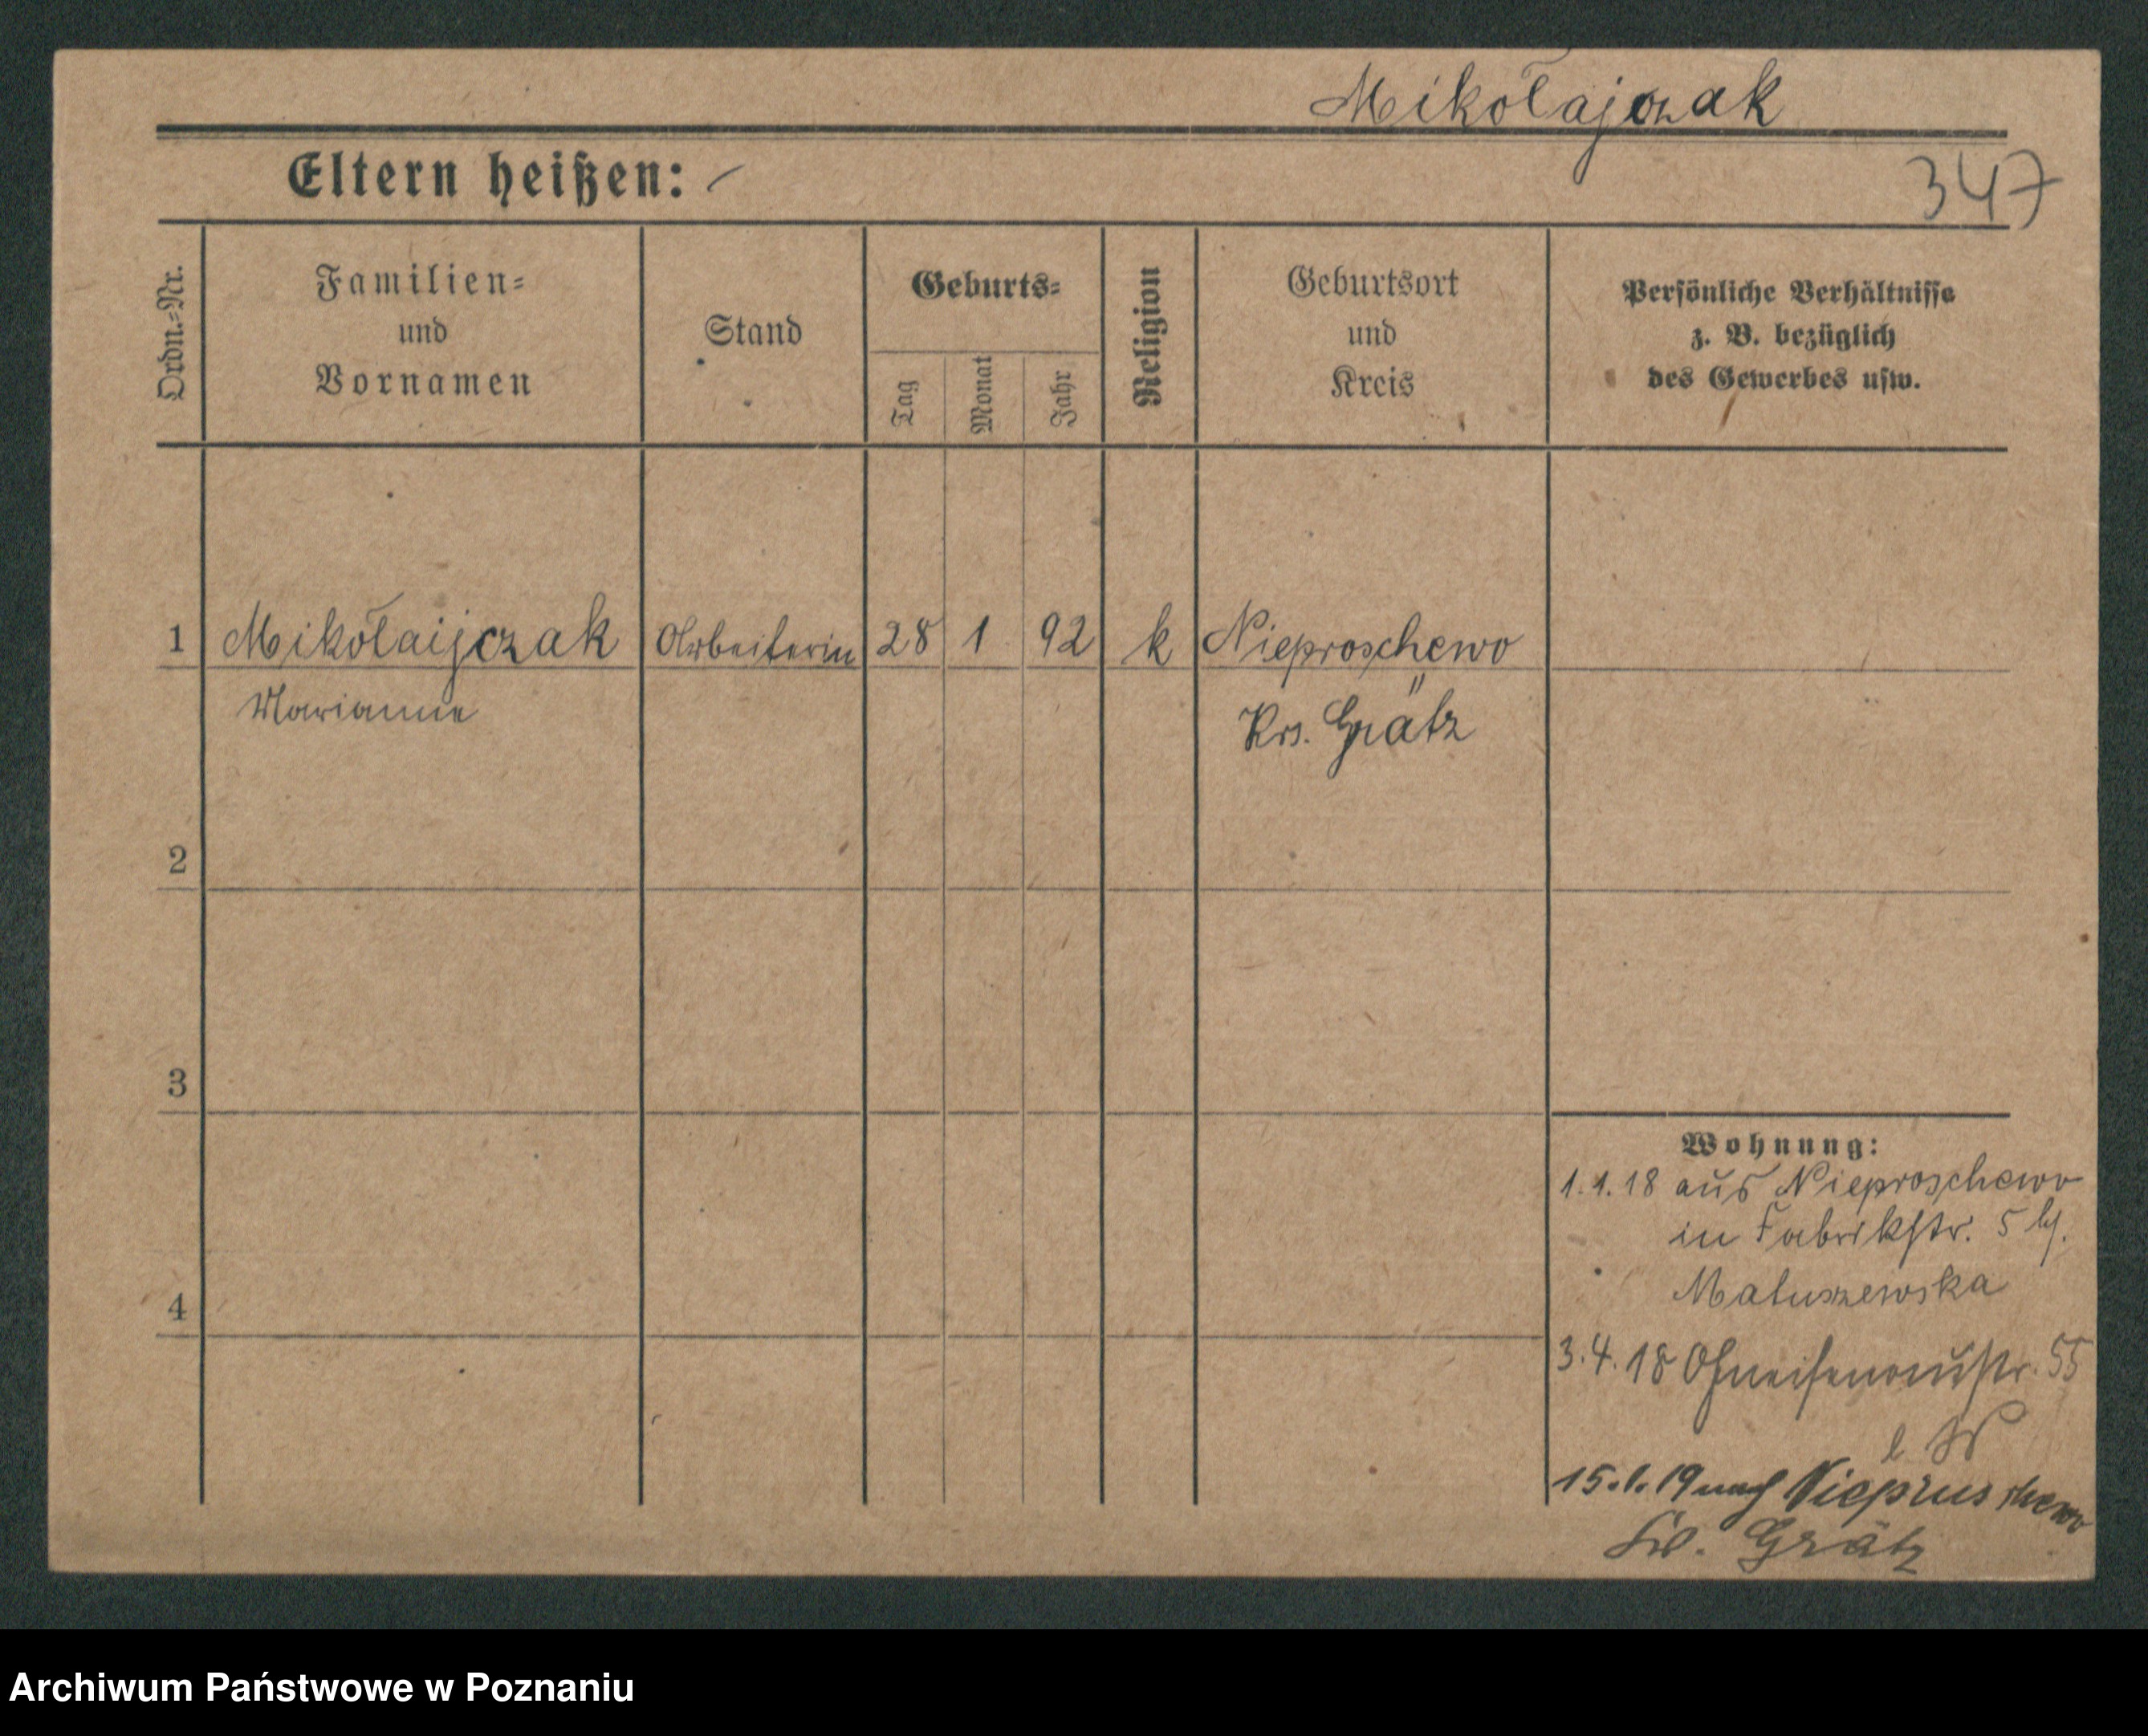 Mikołajczak
Eltern heißen: –
347
Ordn.-Nr.
Familien-
und
Vornamen
Stand
Geburts-
Tag
Monat
Jahr
Religion
Geburtsort
und
Kreis
Persönliche Verhältnisse
z. B. bezüglich
des Gewerbes usw.
1 Mikołaijczak Arbeiterin 28 1 92 k Nieproschewo
Marianne Krs. Grätz
2
3
4
Wohnung:
1.1.18 aus Nieproschewo
in Fabrikstr. 5 bj.
Matuszewska
3.4.18 Gneisenaustr. 55
15.1.19 nach Niepruschewo
Grätz
Archiwum Państwowe w Poznaniu